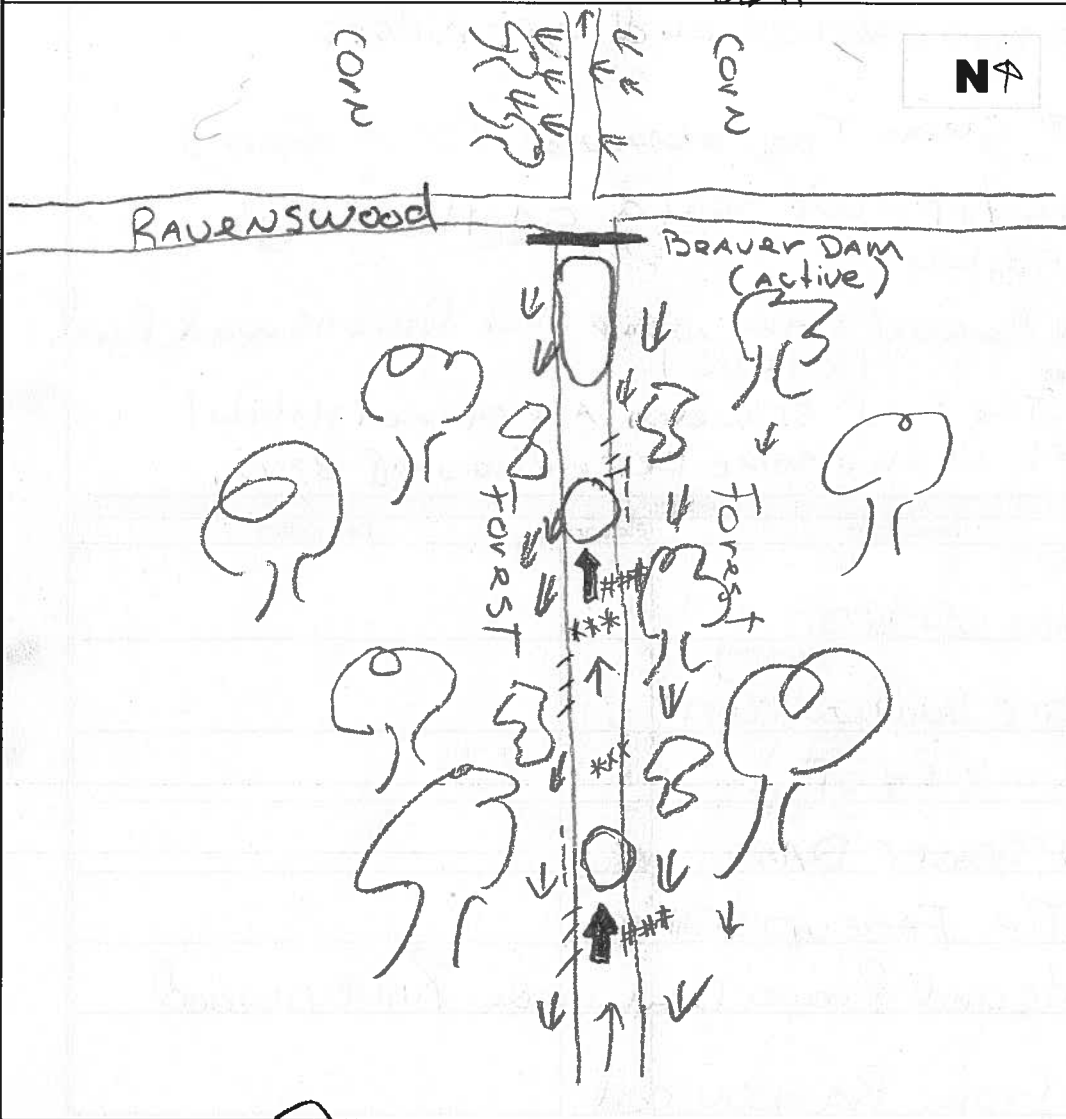 CORN
CORN
N
RAVENSWOOD
BEAVER DAM
(Active)
FOREST
FOREST
###
***
***
###